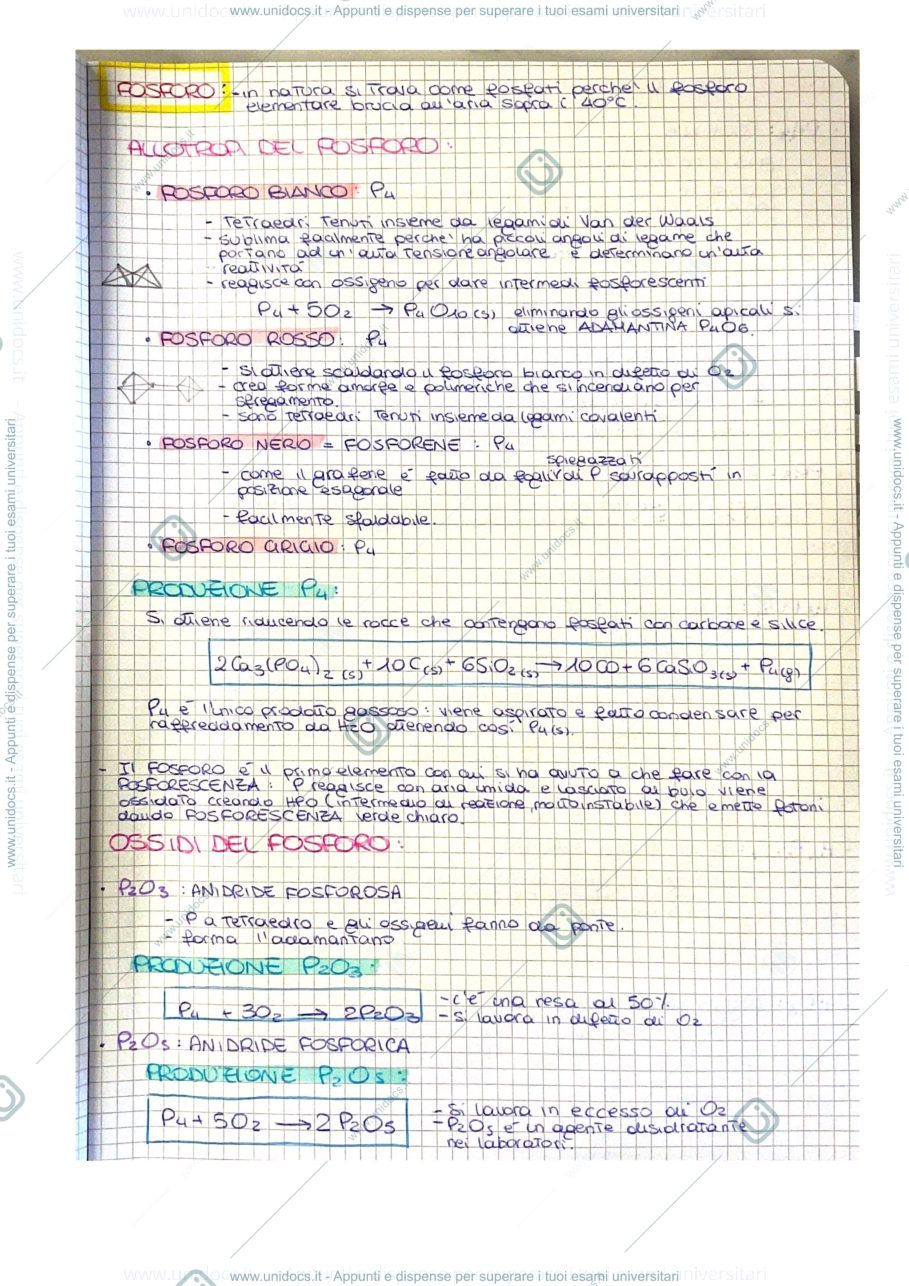 www.unidocs.it - Appunti e dispense per superare i tuoi esami universitari
FOSFORO: - in natura si trova come fosfati perchè il fosforo
elementare brucia all'aria sopra i 40°C.
ALLOTROPI DEL FOSFORO:
• FOSFORO BIANCO: P4
- Tetraedri tenuti insieme da legami di Van der Waals
- sublima facilmente perchè ha piccoli angoli di legame che
portano ad un'alta tensione angolare e determinano un'alta
reattività
- reagisce con ossigeno per dare intermedi fosforescenti
P4 + 5O2 → P4O10 (s) eliminando gli ossigeni apicali si
ottiene ADAMANTINA P4O6.
• FOSFORO ROSSO: P4
- si ottiene scaldando il fosforo bianco in difetto di O2
- crea forme amorfe e polimeriche che si incendiano per
sfregamento.
- sono tetraedri tenuti insieme da legami covalenti.
• FOSFORO NERO = FOSFORENE: P4
spiegazzati
- come il grafene è fatto da fogli di P sovrapposti in
posizione esagonale
- facilmente sfaldabile.
• FOSFORO GRIGIO: P4
PRODUZIONE P4:
Si ottiene riducendo le rocce che contengono fosfati con carbone e silice.
2Ca3(PO4)2 (s) + 10C(s) + 6SiO2(s) → 10CO + 6CaSiO3(s) + P4(g)
P4 è l'unico prodotto gassoso: viene aspirato e fatto condensare per
raffreddamento da H2O ottenendo così P4(s).
- Il FOSFORO è il primo elemento con cui si ha avuto a che fare con la
FOSFORESCENZA: P reagisce con aria umida e lasciato al buio viene
ossidato creando HPO (intermedio di reazione, molto instabile) che emette fotoni
dando FOSFORESCENZA verde chiaro.
OSSIDI DEL FOSFORO:
• P2O3: ANIDRIDE FOSFOROSA
- P a tetraedro e gli ossigeni fanno da ponte.
- forma l'adamantano
PRODUZIONE P2O3:
P4 + 3O2 → 2P2O3
- c'è una resa al 50%
- si lavora in difetto di O2
• P2O5: ANIDRIDE FOSFORICA
PRODUZIONE P2O5:
P4 + 5O2 → 2P2O5
- si lavora in eccesso di O2
- P2O5 è un agente disidratante
nei laboratori.
www.unidocs.it - Appunti e dispense per superare i tuoi esami universitari
www.unidocs.it - Appunti e dispense per superare i tuoi esami universitari
www.unidocs.it - Appunti e dispense per superare i tuoi esami universitari